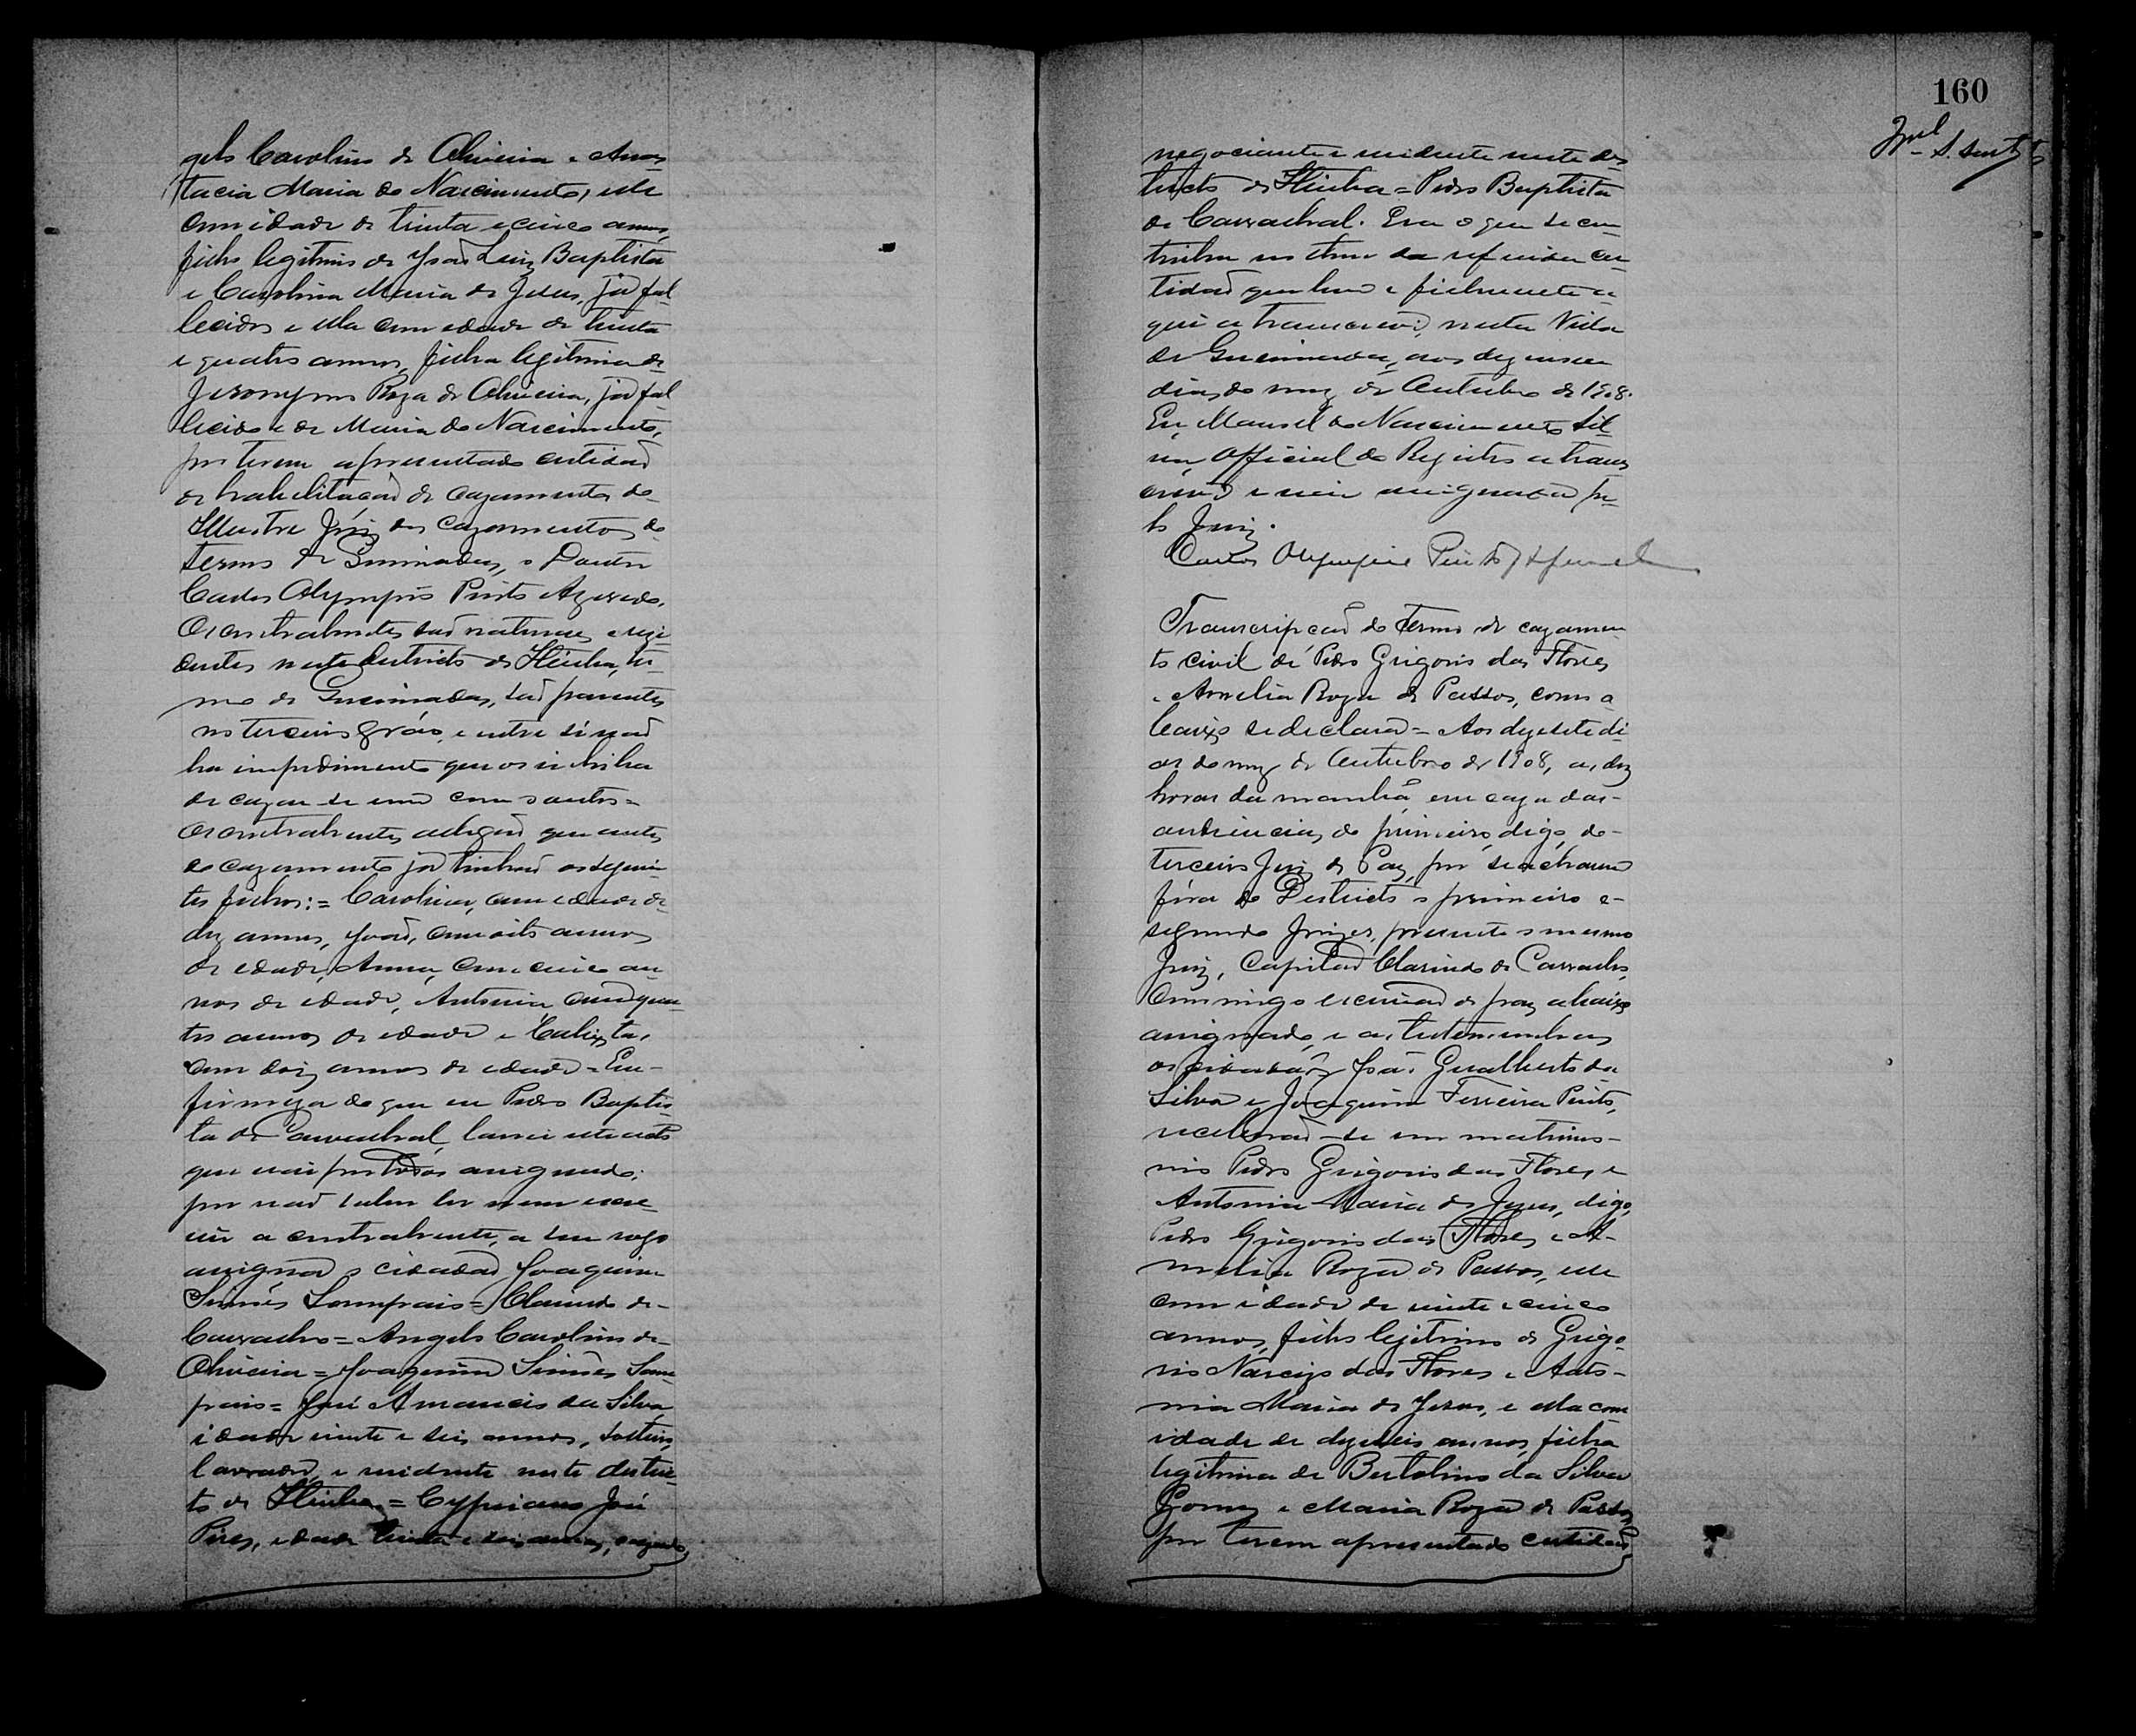 gelo Carolino de Oliveira e Anas
tacia Maria do Nascimento, elle
com idade de trinta e cinco annos,
filho legitimo de João Luiz Baptista
e Carolina Maria de Jesus, já fal
lecidos e ella com edade de trinta
e quatro annos, filha legitima de
Jeronymo Roza de Oliveira, já fal
lecido e de Maria do Nascimento,
por terem apresentado certidão
de habilitação de cazamento do
Illustre Juiz dos Cazamentos do
termo de Queimadas, o Doutor
Carlos Olympio Pinto Azevedo.
Os contrahentes são naturaes e rezi
dentes neste districto de Itiuba, ter
mo de Queimadas, são parentes
no terceiro gráo, e entre si não
ha impedimento que os inhiba
de cazar-se um com o outro =
Os contrahentes que antes
do cazamento já tinhão os seguin
tes filhos: = Carolina, com edade de
dez annos, João, com oito annos
de edade, Anna, com cinco an
nos de edade, Antonia, com qua
tro annos de edade e Calixta,
com dois annos de edade = Em
firmeza do que eu Pedro Baptis
ta de Carvalhal, lavrei este acto
que vai por todos assignado;
por não saber ler nem escre
ver a contrahente, a seu rogo
assigna o cidadão Joaquim
Simões Sampaio = Clarindo de
Carvalho = Angelo Carolino de
Oliveira = Joaquim Simões Sam
paio = José Amancio da Silva
idade vinte e seis annos, solteiro,
lavrador, e residente neste distric
to de Itiuba = Cypriano José
Pires, edade trinta e seis annos, cazado,
160
negociante e residente neste des
tricto de Itiuba = Pedro Baptista
de Carvalhal. Era o que se con
tinha no termo da referida cer
tidão que bem e fielmente a
qui a transcrevi, nesta Villa
de Queimadas, aos
dias do mez de Outubro de 1908.
Eu, Manoel do Nascimento Sil
va, Official do Registro a trans
crevi e vai assignada pe
lo Juiz.
Carlos Olympio Pinto
Transcripção do termo de cazamen
to civil de Pedro Grigorio das Flores
e Amelia Roza de Passos, como a
baixo se declara = Aos dezesete di
as do mez de Outubro de 1908, as dez
horas da manhã, em caza das
audiencias do primeiro, digo, do
terceiro Juiz de Paz, por se acharem
fóra do Destricto o primeiro e
segundo Juizes, presente o mesmo
Juiz, Capitão Clarindo de Carvalho,
commigo escrivão de paz abaixo
assignado, e as testemunhas
os cidadãos José Gualberto da
Silva e Joaquim Ferreira Pinto,
receberão-se em matrimo
nio Pedro Grigorio das Flores e
Antonia Maria de Jezus, digo,
Pedro Grigorio das Flores e A
melia Roza de Passos, elle
com idade de vinte e cinco
annos, filho legitimo de Grigo
rio Narcizo das Flores e Anto
nia Maria de Jesus, e ella com
idade de dezeseis annos, filha
legitima de Bertolino da Silva
Gomes e Maria Roza de Passos,
por terem apresentado certidão